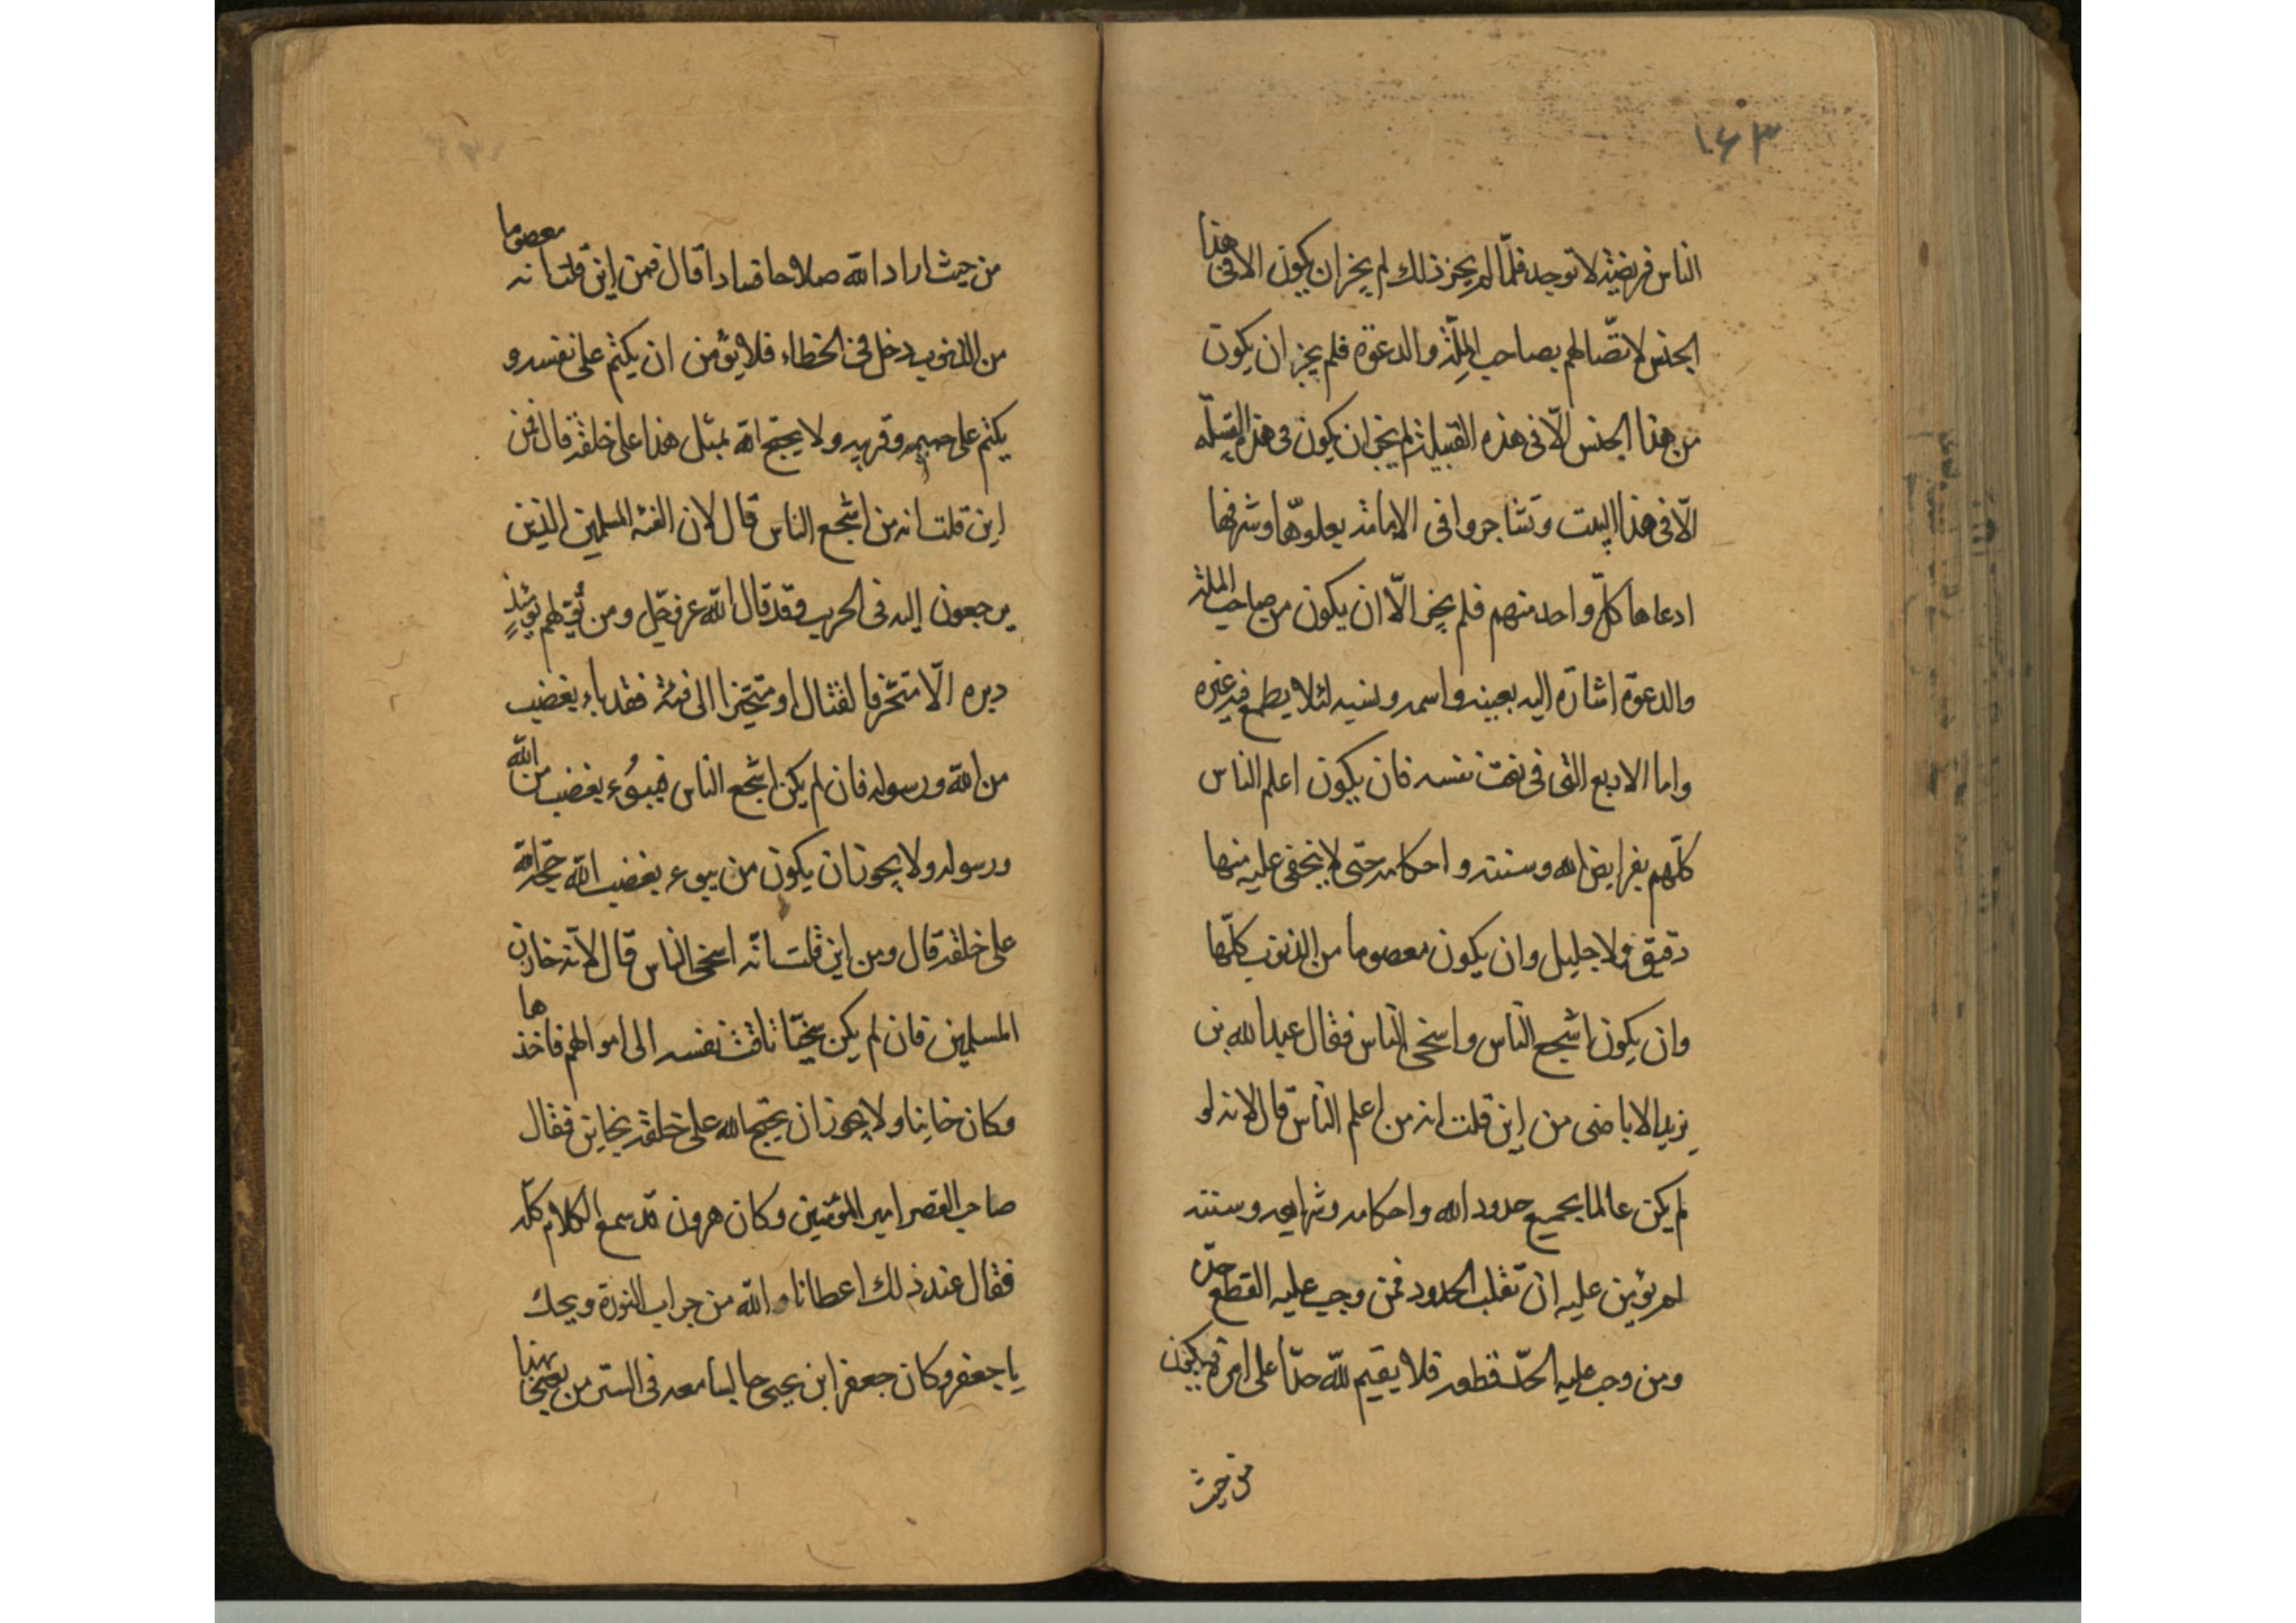 ١٤٣
الناس فريضة لا توجد فلمّا لم يجز ذلك لم يجز ان يكون الا فى هذا
الجنس لاتّصالهم بصاحب الملّة والدعوة فلم يجز ان يكون
من هذا الجنس الّا فى هذه القبيلة لم يجز ان يكون فى هذه القبيلة
الّا فى هذا البيت وتشاجروا فى الامامة يعلوّها وشرفها
ادعاها كلّ واحد منهم فلم يجز الّا ان يكون من صاحب الملة
والدعوة اشارة اليه بعينه واسمه ونسبه لئلا يطمع فيه غيره
واما الاربع التى فى نعت نفسه فان يكون اعلم الناس
كلّهم بفرايض الله وسننه واحكامه حتى لا يخفى عليه منها
دقيق ولا جليل وان يكون معصوما من الذنوب كلّها
وان يكون اشجع النّاس واسخى النّاس فقال عبد الله بن
يزيد الاباضى من اين قلت انه من اعلم النّاس قال لانه لو
لم يكن عالما بجميع حدود الله واحكامه وشرايعه وسننه
لم يؤمن عليه ان تقلب الحدود فمن وجب عليه القطع حدّه
ومن وجب عليه الحدّ قطعه فلا يقيم للّه حدّا على امره فيكون
من حيث
من حيث اراد اللّه صلاحا فسادا قال فمن اين قلت انه معصوما
من الذنوب دخل فى الخطاء فلا يؤمن ان يكتم على نفسه و
يكتم على حميمه وقريبه ولا يحتج اللّه بمثل هذا على خلقه قال فمن
اين قلت انه من اشجع الناس قال لان الفئه المسلمين الذين
يرجعون اليه فى الحرب وقد قال اللّه عز وجل ومن يولّهم يومئذٍ
دبره الّا متحّرفا لقتال او متحيّزا الى فئة فقد باء بغضب
من اللّه ورسوله فان لم يكن اشجع الناس فيبوُء بغضب من اللّه
ورسوله ولا يجوز ان يكون من يبوء بغضب اللّه حجة اللّه
على خلقه قال ومن اين قلت انّه اسخى الناس قال لانّه خازن
المسلمين فان لم يكن سخيّا تاقت نفسه الى اموالهم فاخذها
وكان خاينا ولا يجوز ان يحتج الله على خلقه بخاين فقال
صاحب القصر امير المؤمنين وكان هرون قد سمع الكلام كلّه
فقال عند ذلك اعطانا واللّه من جراب النورة ويحك
يا جعفر وكان جعفر ابن يحيى جالسا معه فى الستر من يعنى بهذا